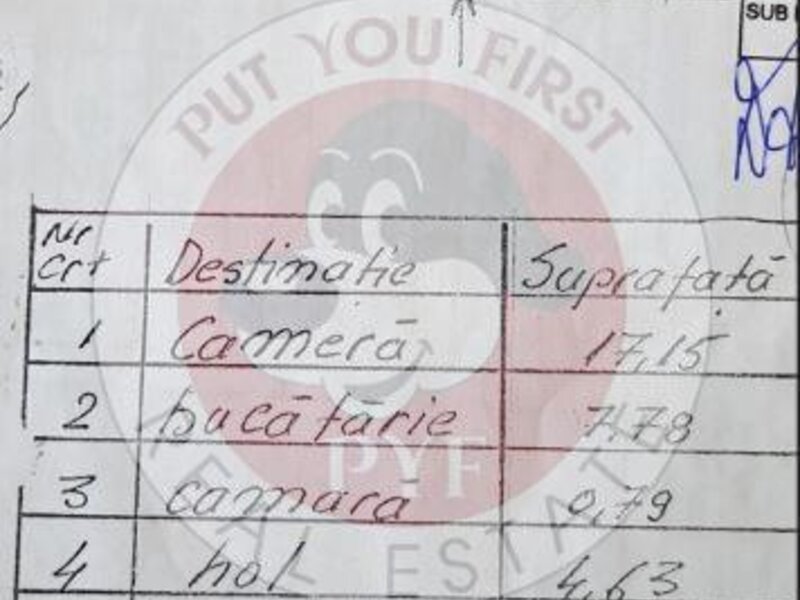 PUT YOU FIRST
SUB
Nr crt Destinatie Suprafată
1 Cameră 17,15
2 bucătărie 7,78
3 camară 0,79
4 hol 4,63
PYF
REAL ESTATE